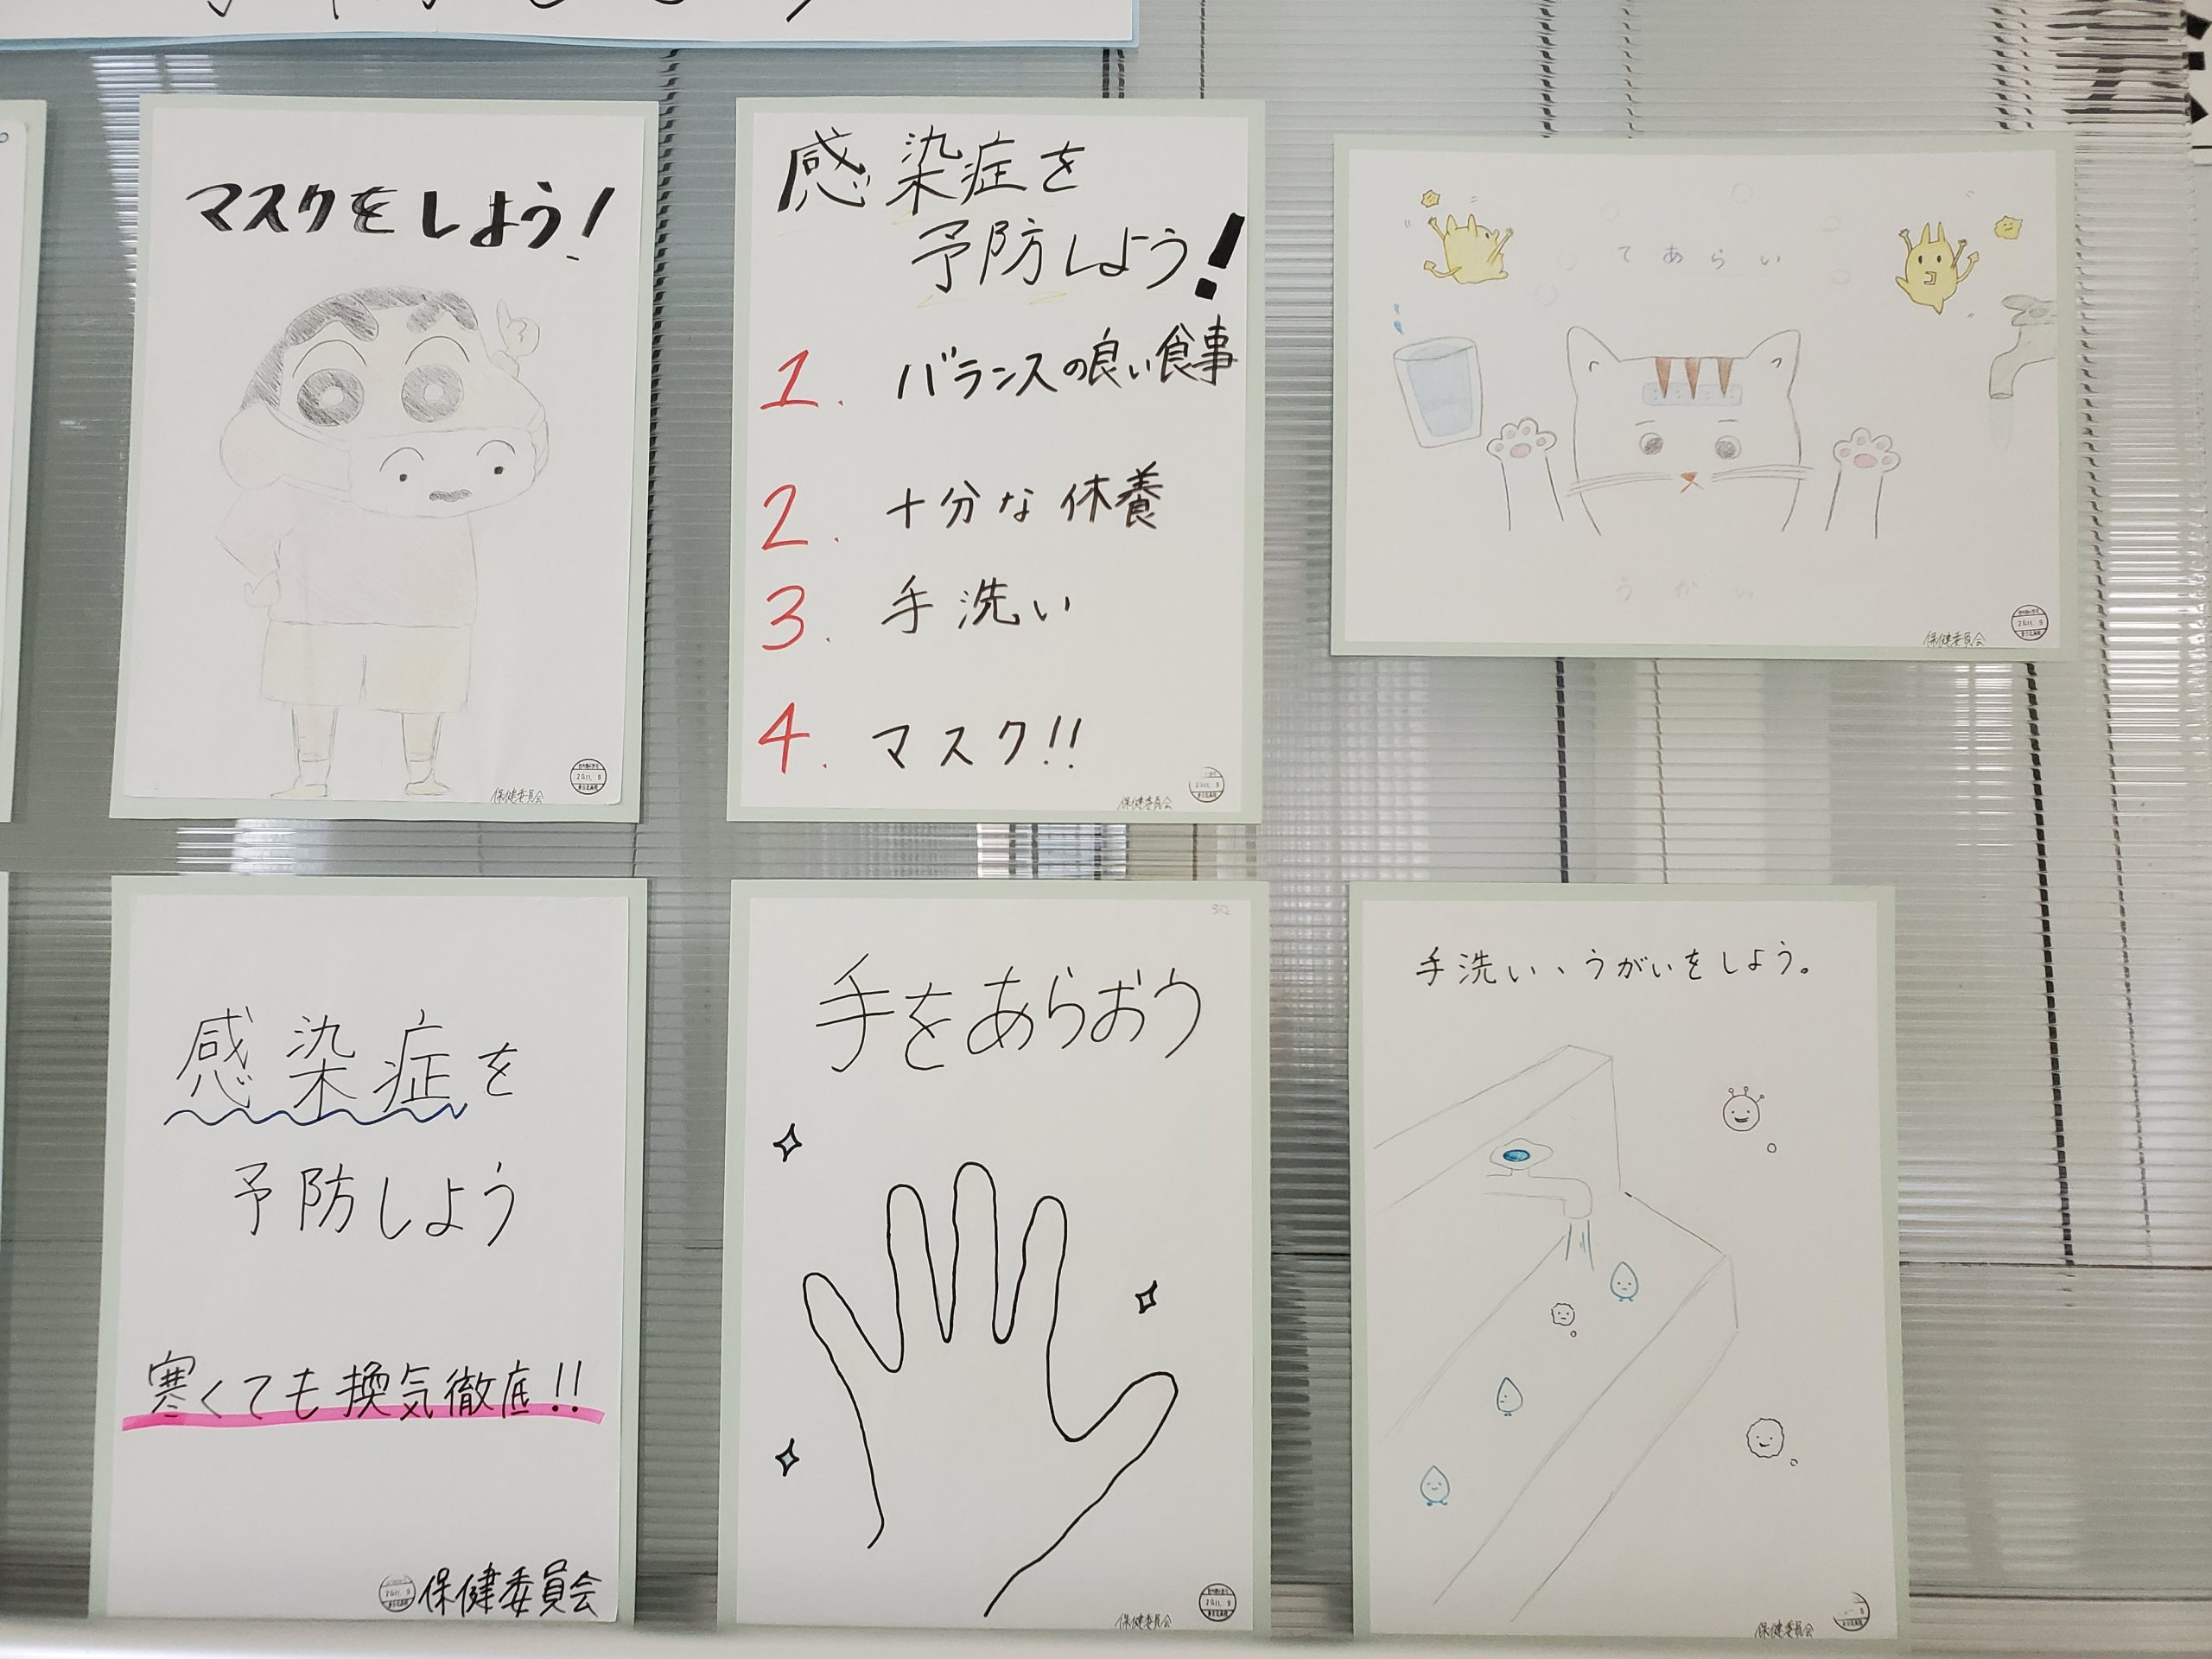 マスクをしよう!
保健委員会
感染症を
予防しよう!
1. バランスの良い食事
2. 十分な休養
3. 手洗い
4. マスク!!
保健委員会
てあらい
うがい
保健委員会
感染症を
予防しよう
寒くても換気徹底!!
保健委員会
手をあらおう
保健委員会
手洗い、うがいをしよう。
保健委員会